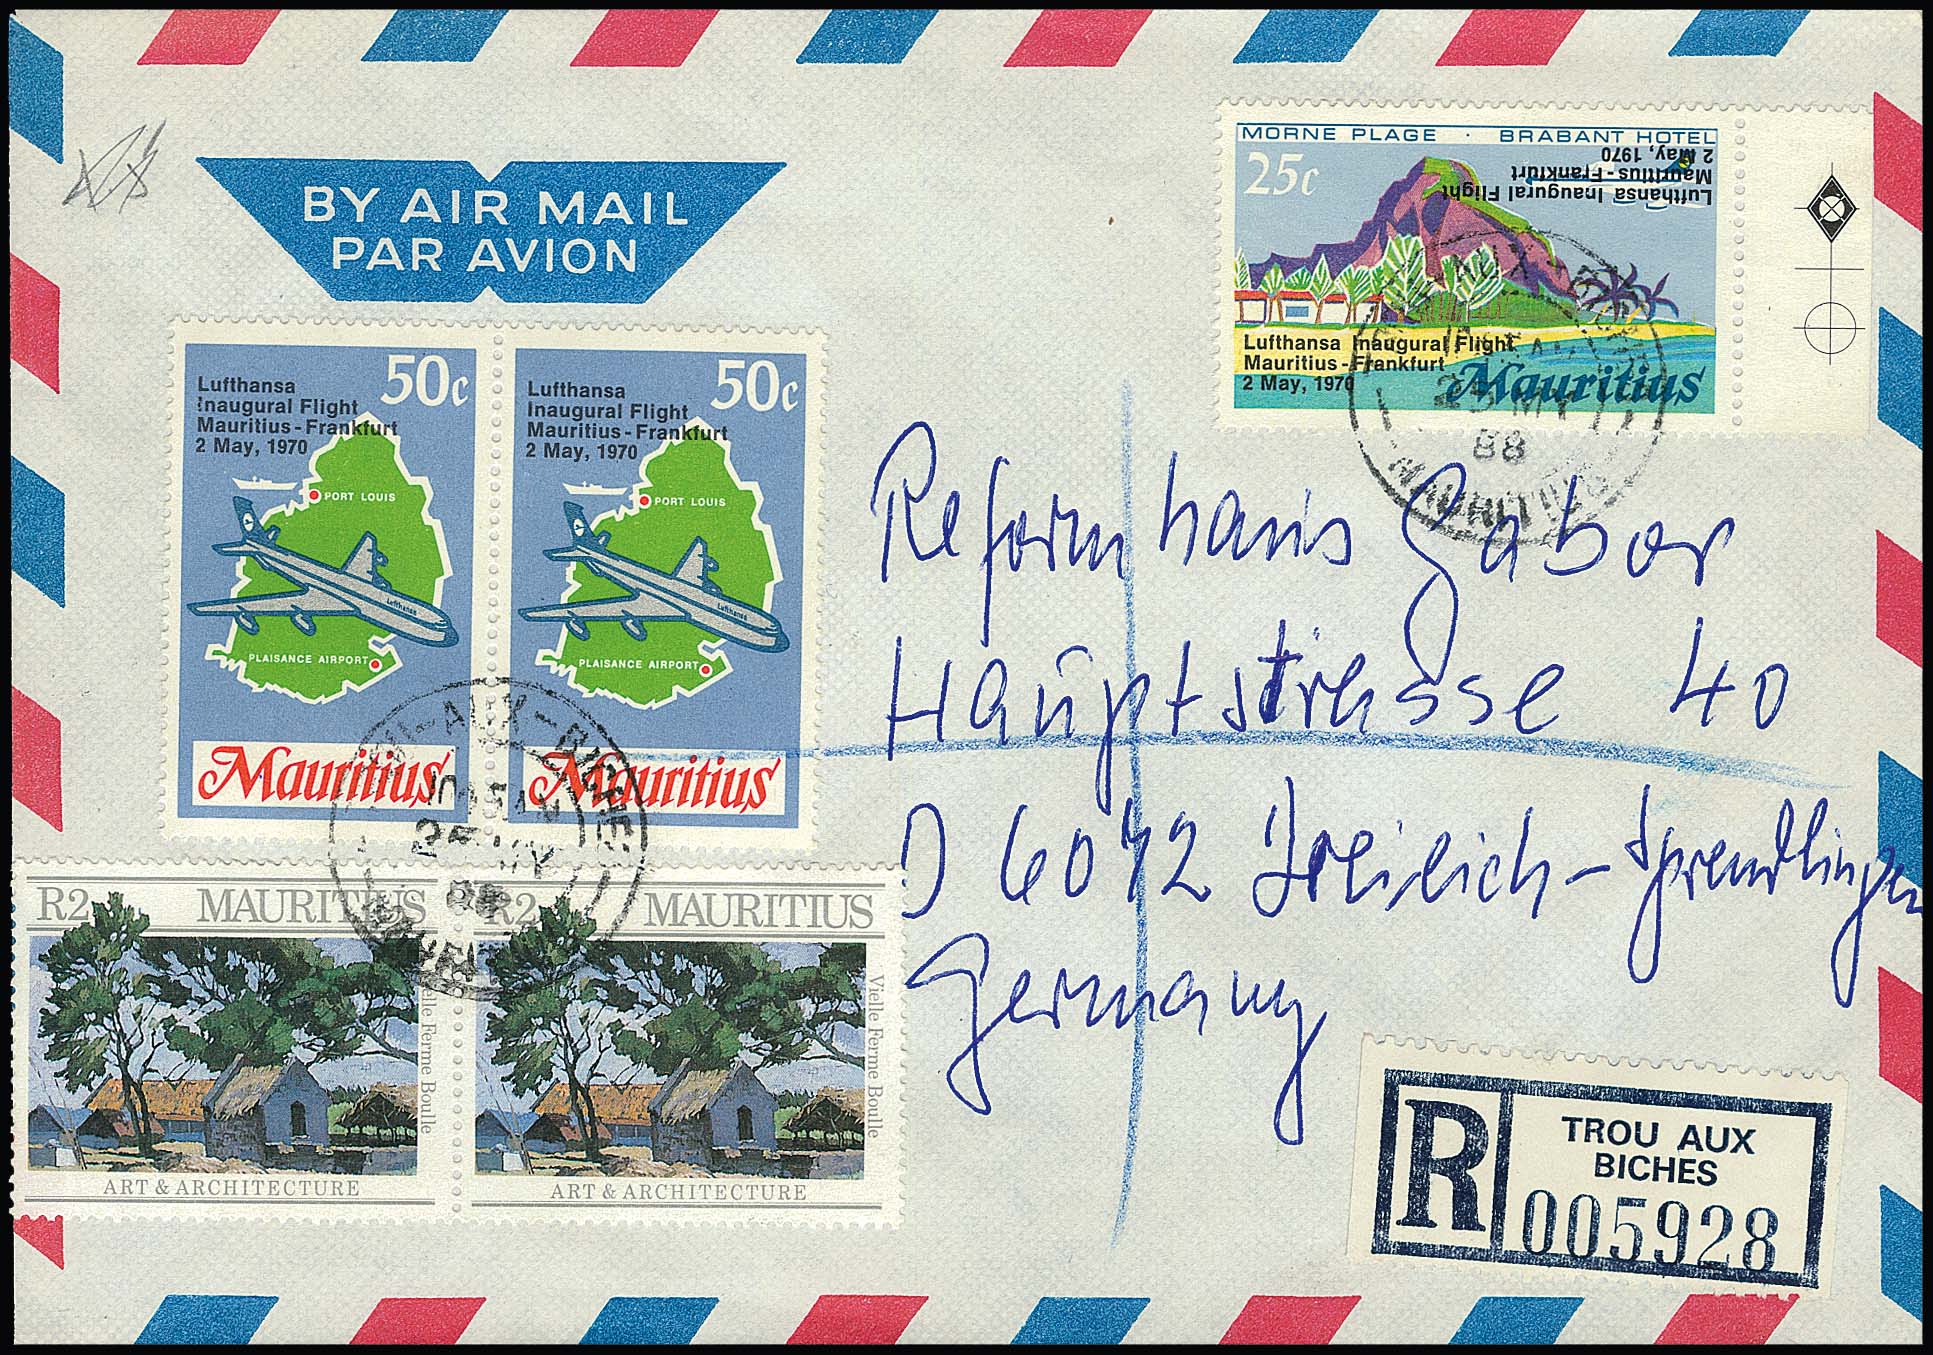 BY AIR MAIL
PAR AVION
MORNE PLAGE · BRABANT HOTEL
25c
Lufthansa Inaugural Flight
Mauritius - Frankfurt
2 May, 1970
Lufthansa Inaugural Flight
Mauritius - Frankfurt
2 May, 1970
Mauritius
25 MY
88
MAURITIUS
50c
Lufthansa
Inaugural Flight
Mauritius - Frankfurt
2 May, 1970
PORT LOUIS
Lufthansa
PLAISANCE AIRPORT
Mauritius
50c
Lufthansa
Inaugural Flight
Mauritius - Frankfurt
2 May, 1970
PORT LOUIS
Lufthansa
PLAISANCE AIRPORT
Mauritius
AUX-BICHES
25 MY
88
R2 MAURITIUS
Vielle Ferme Boulle
ART & ARCHITECTURE
R2 MAURITIUS
Vielle Ferme Boulle
ART & ARCHITECTURE
Reformhaus Gabor
Hauptstrasse 40
D 6072 Dreieich-Sprendlingen
Germany
R
TROU AUX
BICHES
005928